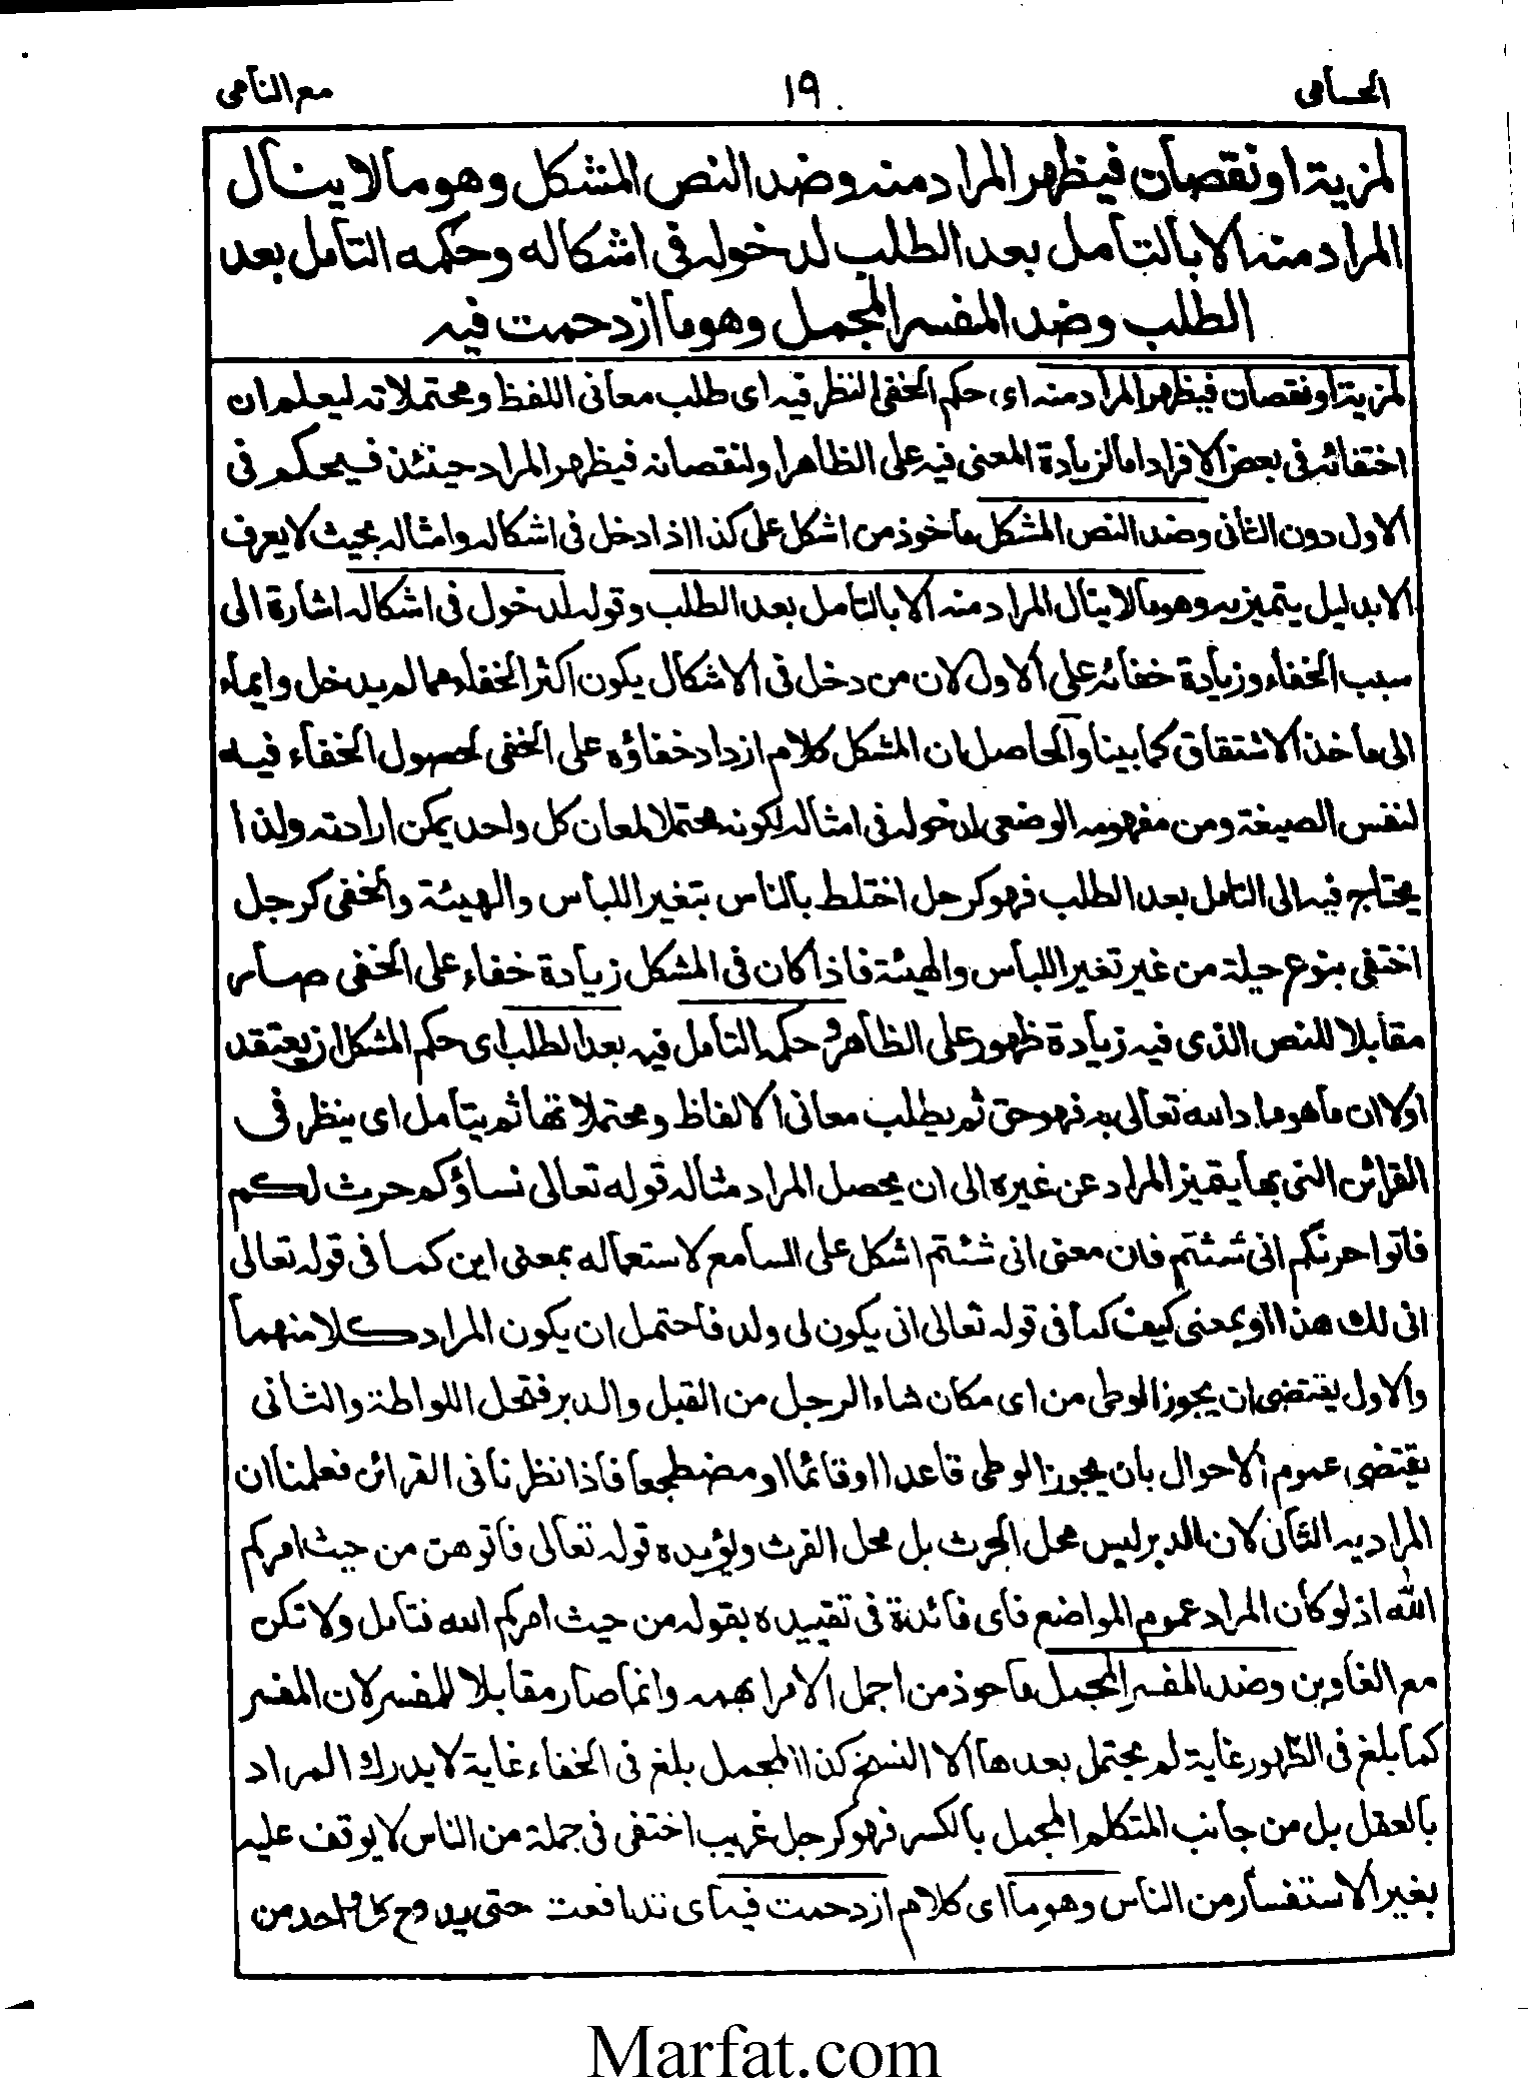 الحسامى ١٩ مع النامى
لمزية او نقصان فيظهر المراد منه وضد النص المشكل وهو مالا ينال
المراد منه الا بالتامل بعد الطلب لدخوله فى اشكاله وحكمه التامل بعد
الطلب وضد المفسر المجمل وهو ما ازدحمت فيه
لمزية او نقصان فيظهر المراد منه اى حكم الخفى النظر فيه اى طلب معانى اللفظ ومحتملاته ليعلم ان
اختفائه فى بعض الافراد اما لزيادة المعنى فيه على الظاهر او لنقصانه فيظهر المراد حينئذ فيحكم فى
الاول دون الثانى وضد النص المشكل ماخوذ من اشكل على كذا اذا دخل فى اشكاله وامثاله بحيث لا يعرف
الا بدليل يتميز به وهو مالا ينال المراد منه الا بالتامل بعد الطلب وقوله لدخول فى اشكاله اشارة الى
سبب الخفاء وزيادة خفائه على الاول لان من دخل فى الاشكال يكون اكثر الخفاء مما لم يدخل وايماء
الى ماخذ الاشتقاق كما بينا والحاصل ان المشكل كلام ازداد خفاؤه على الخفى لحصول الخفاء فيه
لنفس الصيغة ومن مفهومه الوضعى لدخوله فى امثاله لكونه محتملا لمعان كل واحد يمكن ارادته ولذا
يحتاج فيه الى التامل بعد الطلب فهو كرجل اختلط بالناس بتغير اللباس والهيئة والخفى كرجل
اختفى بنوع حيلة من غير تغير اللباس والهيئة فاذا كان فى المشكل زيادة خفاء على الخفى صار
مقابلا للنص الذى فيه زيادة ظهور على الظاهر وحكمه التامل فيه بعد الطلب اى حكم المشكل ان يعتقد
اولا ان ما هو مراد الله تعالى به فهو حق ثم يطلب معانى الالفاظ ومحتملاتها ثم يتامل اى ينظر فى
القرائن التى بها يتميز المراد عن غيره الى ان يحصل المراد مثاله قوله تعالى نساؤكم حرث لكم
فاتوا حرثكم انى شئتم فان معنى انى شئتم اشكل على السامع لاستعماله بمعنى اين كما فى قوله تعالى
انى لك هذا او بمعنى كيف كما فى قوله تعالى انى يكون لى ولد فاحتمل ان يكون المراد كلا منهما
والاول يقتضى ان يجوز الوطى من اى مكان شاء الرجل من القبل والدبر فتحل اللواطة والثانى
يقتضى عموم الاحوال بان يجوز الوطى قاعدا او قائما او مضطجعا فاذا نظرنا فى القرائن فعلمنا ان
المراد به الثانى لان الدبر ليس محل الحرث بل محل الفرث ويؤيده قوله تعالى فاتوهن من حيث امركم
الله اذ لو كان المراد عموم المواضع فاى فائدة فى تقييده بقوله من حيث امركم الله فتامل ولا تكن
مع الغاوين وضد المفسر المجمل ماخوذ من اجمل الامر ابهمه وانما صار مقابلا للمفسر لان المفسر
كما بلغ فى الظهور غاية لم يحتمل بعدها الا النسخ كذا المجمل بلغ فى الخفاء غاية لا يدرك المراد
بالعقل بل من جانب المتكلم المجمل بالكسر فهو كرجل غريب اختفى فى جملة من الناس لا يوقف عليه
بغير الاستفسار من الناس وهو ما اى كلام ازدحمت فيه اى تدافعت حتى يدفع كل واحد من
Marfat.com